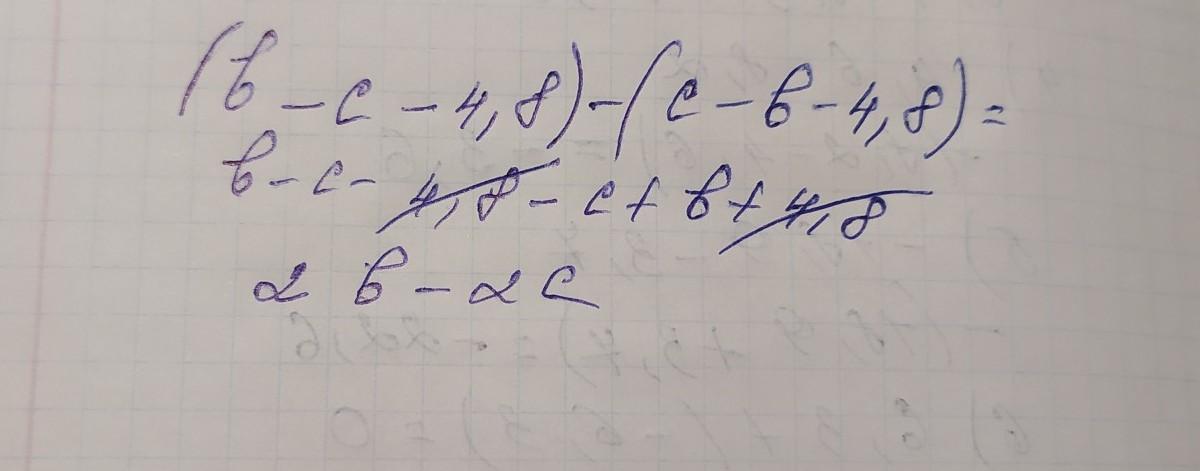 (b - c - 4,8) - (c - b - 4,8) =
b - c - 4,8 - c + b + 4,8
2 b - 2c